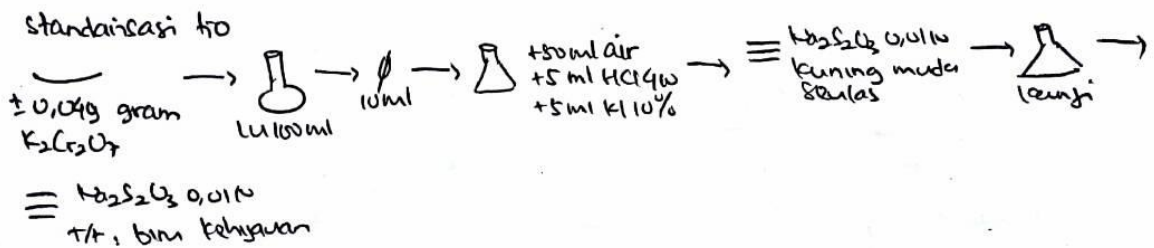 standarisasi tio
± 0,049 gram
K₂Cr₂O₇
LU 100 ml
10 ml
+50 ml air
+5 ml HCl 4N
+5 ml KI 10%
Na₂S₂O₃ 0,01N
kuning muda
seulas
kanji
Na₂S₂O₃ 0,01N
T/A, biru kehijauan